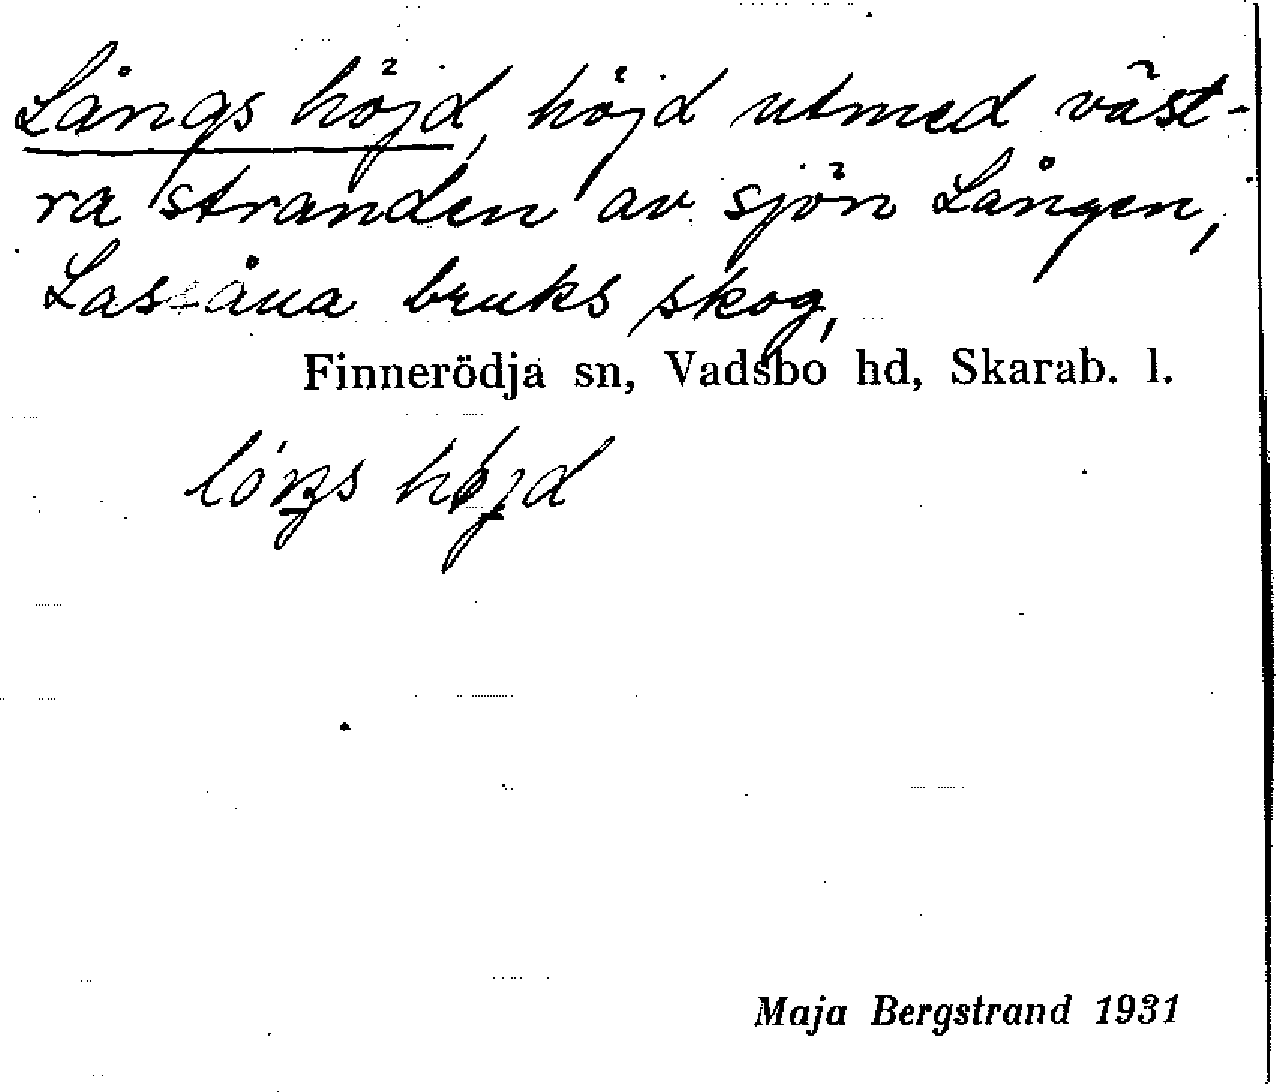 Långs höjd, höjd utmed väst-
ra stranden av sjön Lången,
Lassåna bruks skog,
Finnerödja sn, Vadsbo hd, Skarab. l.
Maja Bergstrand 1931